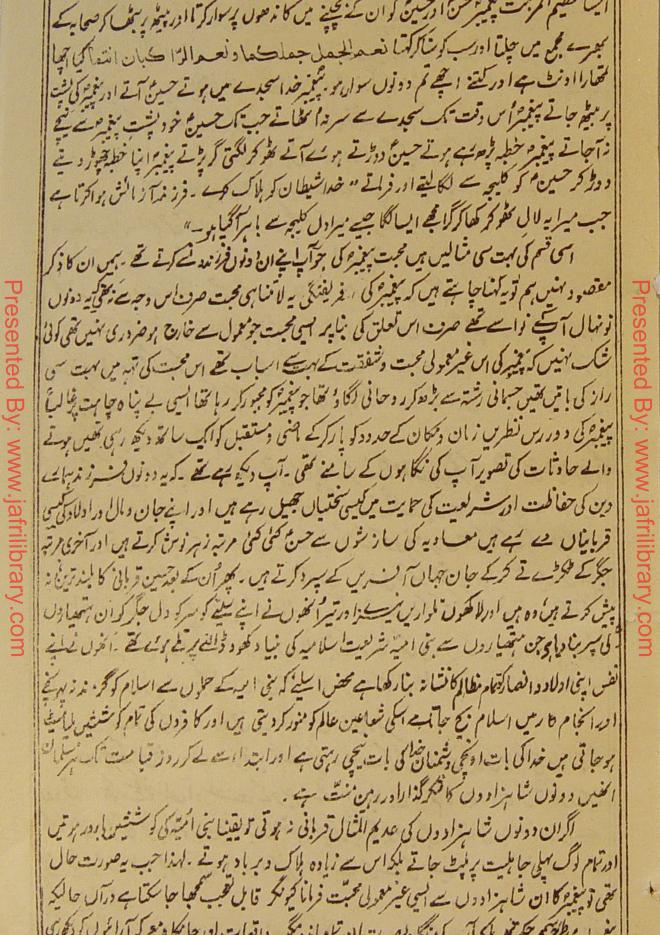 ایسا عظیم المرتبت پیغمبر حسن اور حسین کو ان کے بچپنے میں کاندھوں پر سوار کرتا اور پیٹھ پر بٹھا کر صحابہ کے
بھرے مجمع میں چلتا اور سب کو سنا کر کہتا نعم الجمل جملکما ولنعم الراکبان انتما کیا اچھا
تمھارا اونٹ ہے اور کتنے اچھے تم دونوں سوار ہو۔ پیغمبر خدا سجدے میں ہوتے حسین آتے اور پیغمبر کی پشت
پر بیٹھ جاتے پیغمبر اُس وقت تک سجدے سے سر نہ اُٹھاتے جب تک حسین خود پشت پیغمبر سے نیچے
نہ آجاتے پیغمبر خطبہ پڑھ رہے ہوتے حسین دوڑتے ہوے آتے ٹھوکر لگتی گر پڑتے پیغمبر اپنا خطبہ چھوڑ دیتے
دوڑ کر حسین کو کلیجہ سے لگا لیتے اور فرماتے " خدا شیطان کو ہلاک کرے ۔ فرزند آزمائش ہوا کرتا ہے
جب میرا یہ لال ٹھوکر کھا کر گرا مجھے ایسا لگا جیسے میرا دل کلیجہ سے باہر آگیا ہو ۔"
اسی قسم کی بہت سی مثالیں ہیں محبت پیغمبر کی جو آپ اپنے ان دونوں فرزندوں سے کرتے تھے ۔ ہمیں ان کا ذکر
مقصود نہیں ہم تو یہ کہنا چاہتے ہیں کہ پیغمبر کی فریفتگی یہ لا متناہی محبت صرف اس وجہ سے نہ تھی کہ یہ دونوں
نونہال آپ کے نواسے تھے صرف اس تعلق کی بنا پر ایسی محبت جو معمول سے خارج ہو ضروری نہیں تھی کوئی
شک نہیں کہ پیغمبر کی اس غیر معمولی محبت و شفقت کے بہت سے اسباب تھے اس محبت کی تہہ میں بہت سی
راز کی باتیں تھیں جسمانی رشتہ سے بڑھ کر روحانی لگاؤ تھا جو پیغمبر کو مجبور کر رہا تھا ایسی بے پناہ چاہت پر
پیغمبر کی دور رس نظریں زمان و مکان کے حدود کو پار کر کے ماضی و مستقبل کو ایک ساتھ دیکھ رہی تھیں ہونے
والے حادثات کی تصویر آپ کی نگاہوں کے سامنے تھی ۔ آپ دیکھ رہے تھے ۔ کہ یہ دونوں فرزند ہمارے
دین کی حفاظت اور شریعت کی حمایت میں کیسی سختیاں جھیل رہے ہیں اور اپنے جان و مال اور اولاد کی کیسی
قربانیاں دے رہے ہیں معاویہ کی سازشوں سے حسن کئی کئی مرتبہ زہر نوش کرتے ہیں اور آخری مرتبہ
جگر کے ٹکڑے قے کر کے جان جہاں آفریں کے سپرد کرتے ہیں ۔ پھر اُن کے بعد حسین قربانی کا بلند ترین نمونہ
پیش کرتے ہیں وہ ہیں اور لاکھوں تلواریں نیزے اور تیر اُنھوں نے اپنے سینے کو سر کو دل جگر کو ان ہتھیاروں
کی سپر بنا دیا ہے جن ہتھیاروں سے بنی امیہ شریعت اسلامیہ کی بنیاد کھود ڈالنے پر تلے ہوئے تھے ۔ انھوں نے اپنے
نفس اپنی اولاد و انصار کو تمام مظالم کا نشانہ بنا رکھا ہے محض اسلئے کہ بنی امیہ کے حملوں سے اسلام کو گزند نہ پہونچے
اور انجام کار میں اسلام بچ جاتا ہے اسکی شعاعیں عالم کو منور کر دیتی ہیں اور کافروں کی تمام کوششیں ملیامیٹ
ہو جاتی ہیں خدا کی بات اونچی و دشمنان خدا کی بات نیچی رہتی ہے اور ابتداء سے لے کر روز قیامت تک ہر مسلمان
انھیں دونوں شاہزادوں کا شکر گذار اور رہن منت ہے ۔
اگر ان دونوں شاہزادوں کی عدیم المثال قربانی نہ ہوتی تو یقینا بنی امیہ کی کوششیں بارور ہوتیں
اور تمام لوگ پہلی جاہلیت پر پلٹ جاتے بلکہ اس سے زیادہ ہلاک و برباد ہوتے ۔ لہذا جب یہ صورت حال
تھی تو پیغمبر کا ان شاہزادوں سے ایسی غیر معمولی محبت فرمانا کیونکر قابل تعجب سمجھا جا سکتا ہے درآں حالیکہ
Presented By: www.jafrilibrary.com
Presented By: www.jafrilibrary.com